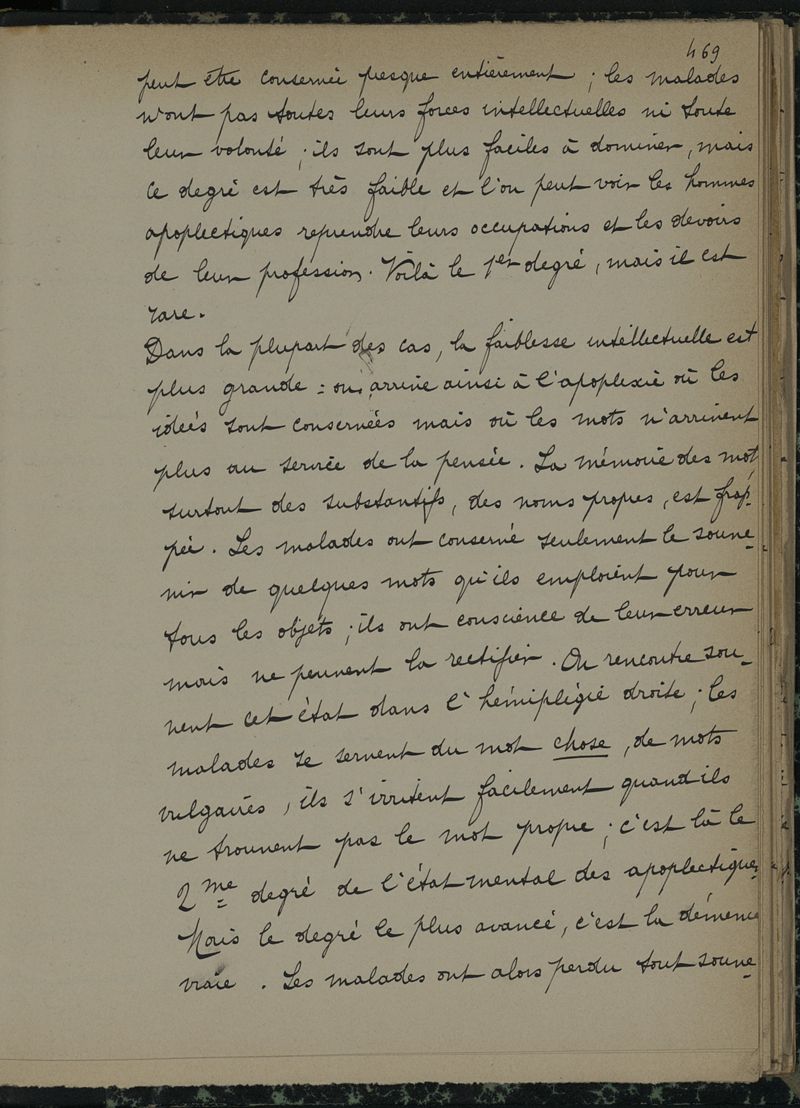 469
peut être conservée presque entièrement ; les malades
n'ont pas toutes leurs forces intellectuelles ni toute
leur volonté ; ils sont plus faciles à dominer, mais
ce degré est très faible et l'on peut voir les hommes
apoplectiques reprendre leurs occupations et les devoirs
de leur profession. Voilà le 1er degré, mais il est
rare.
Dans la plupart des cas, la faiblesse intellectuelle est
plus grande : on arrive ainsi à l'apoplexie où les
idées sont conservées mais où les mots n'arrivent
plus au service de la pensée. La mémoire des mots
surtout des substantifs, des noms propres, est frap-
pée. Les malades ont conservé seulement le souve-
nir de quelques mots qu'ils emploient pour
tous les objets ; ils ont conscience de leur erreur
mais ne peuvent la rectifier. On rencontre sou-
vent cet état dans l'hémiplégie droite ; les
malades se servent du mot chose, de mots
vulgaires, ils s'irritent facilement quand ils
ne trouvent pas le mot propre ; c'est là le
2me degré de l'état mental des apoplectiques
Mais le degré le plus avancé, c'est la démence
vraie. Les malades ont alors perdu tout souve-